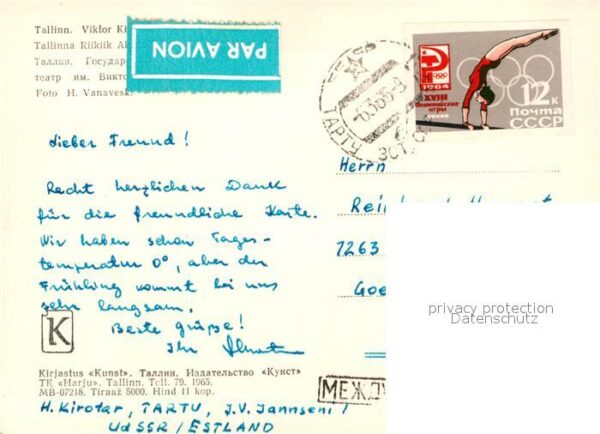 Tallinn. Viktor
PAR AVION
Tallinna Riiklik
Таллин. Государ
театр им. Викто
Foto H. Vanaveski
ТАРТУ
1964
XVIII
Олимпийские
игры
Токио
12 к
Почта
СССР
Lieber Freund!
Recht herzlichen Dank
für die freundliche Karte.
Wir haben schon Tages-
temperatur 0°, aber der
Frühling kommt bei uns
sehr langsam.
Beste Grüße!
Ihr
Herrn
7263
K
privacy protection
Datenschutz
Kirjastus «Kunst». Таллин. Издательство «Кунст»
TK «Harju». Tallinn. Tell. 79. 1965.
MB-07218. Tiraaž 5000. Hind 11 kop.
МЕЖД
H. Kirotar, TARTU, J.V. Jannseni 1
UdSSR/ESTLAND